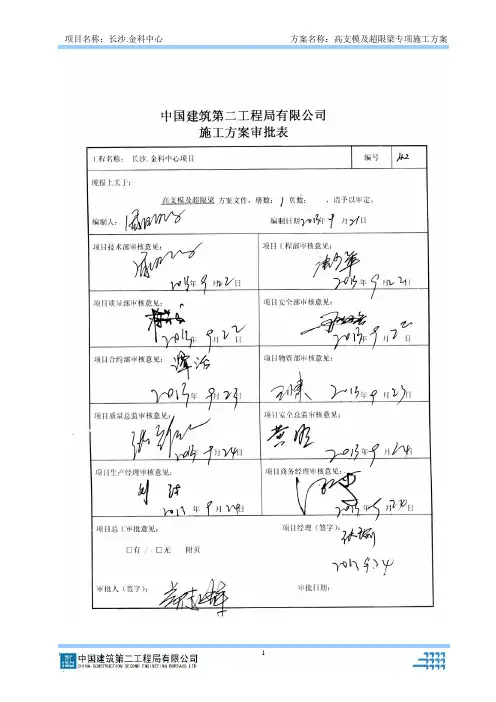 项目名称：长沙.金科中心 方案名称：高支模及超限梁专项施工方案
中国建筑第二工程局有限公司
施工方案审批表
工程名称： 长沙.金科中心项目 编号
现报上关于：
高支模及超限梁 方案文件，册数： 1 页数： ，请予以审定。
编制人： 编制日期2013年 9 月21日
项目技术部审核意见： 项目工程部审核意见：
2013年 9 月22日 2013年 9 月22日
项目质量部审核意见： 项目安全部审核意见：
2013年 9月22日 2013年 9月22日
项目合约部审核意见： 项目物资部审核意见：
2013年 9月23日 2013年 9月23日
项目质量总监审核意见： 项目安全总监审核意见：
2013年 9月24日 黄明 2013年 9月24日
项目生产经理审核意见： 项目商务经理审核意见：
2013年 9月24日 2013年 9月24日
项目总工审批意见： 项目经理（签字）：
□有 / □无 附页
2013.9.24
审批人（签字）： 审批日期：
1
中国建筑第二工程局有限公司
CHINA CONSTRUCTION SECOND ENGINEERING BUREAU LTD